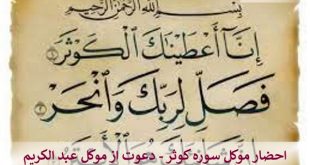 بِسْمِ اللَّهِ الرَّحْمَنِ الرَّحِيمِ
إِنَّا أَعْطَيْنَاكَ الْكَوْثَرَ
فَصَلِّ لِرَبِّكَ وَانْحَرْ
احضار موکل سوره کوثر - دعوت از موکل عبد الکریم